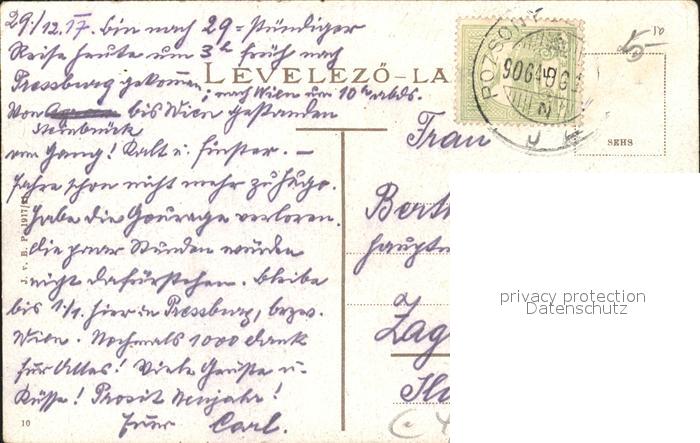 29./12.17. bin nach 29-stündiger
Reise heute um 3h früh nach
Pressburg gekommen; nach Wien um 10h abds.
LEVELEZŐ-LA
Von bis Wien gestanden
Steinbrück
am Gang! Kalt u. finster. –
Fahre schon nicht mehr zu Hugo.
Habe die Courage verloren.
die paar Stunden würden
nicht dafürstehen. Bleibe
bis 1./1. hier in Pressburg, bezw.
Wien. Nochmals 1000 Dank
für Alles! Viele Grüsse u.
Küsse! Prosit Neujahr!
Euer Carl.
10
J. v. B. P. 1917/
POZSONY
5-
SEHS
Frau
Berth
Haupt
Zag
privacy protection
Datenschutz